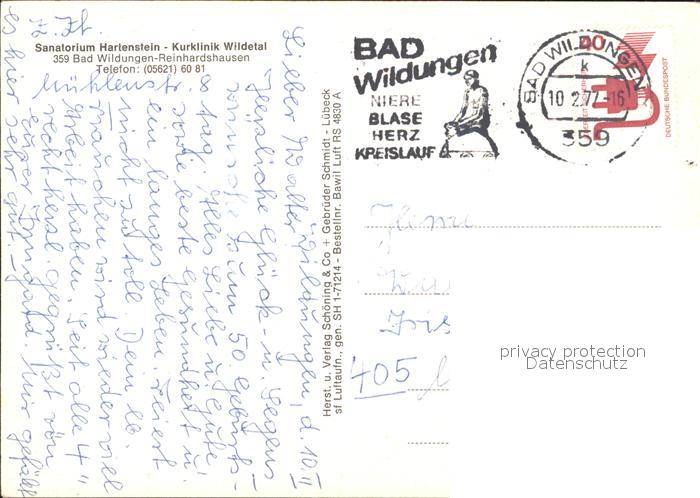 z. Zt.
Sanatorium Hartenstein - Kurklinik Wildetal
359 Bad Wildungen-Reinhardshausen
Telefon: (05621) 60 81
Mühlenstr. 8
Wildungen, d. 10.II
Lieber Walter,
Herzliche Glück- u. Segens
wünsche zum 50. Geburts-
tag. Alles Liebe u. Gute
sowie beste Gesundheit u.
ein langes Leben. Feiert
nicht zu toll. Dein lb.
Frauchen wird wieder viel
Arbeit haben. Seit alle 4
recht herzl. gegrüßt von
Eurer Irmgard. Mir gefällt
es hier sehr gut
Herst. u. Verlag Schöning & Co + Gebrüder Schmidt - Lübeck
sf Luftaufn., gen. SH 1-71214 - Bestellnr. Bawil Luft RS 4830 A
BAD
Wildungen
NIERE
BLASE
HERZ
KREISLAUF
BAD WILDUNGEN
k
10.2.77-16
359
40
DEUTSCHE BUNDESPOST
405
privacy protection
Datenschutz